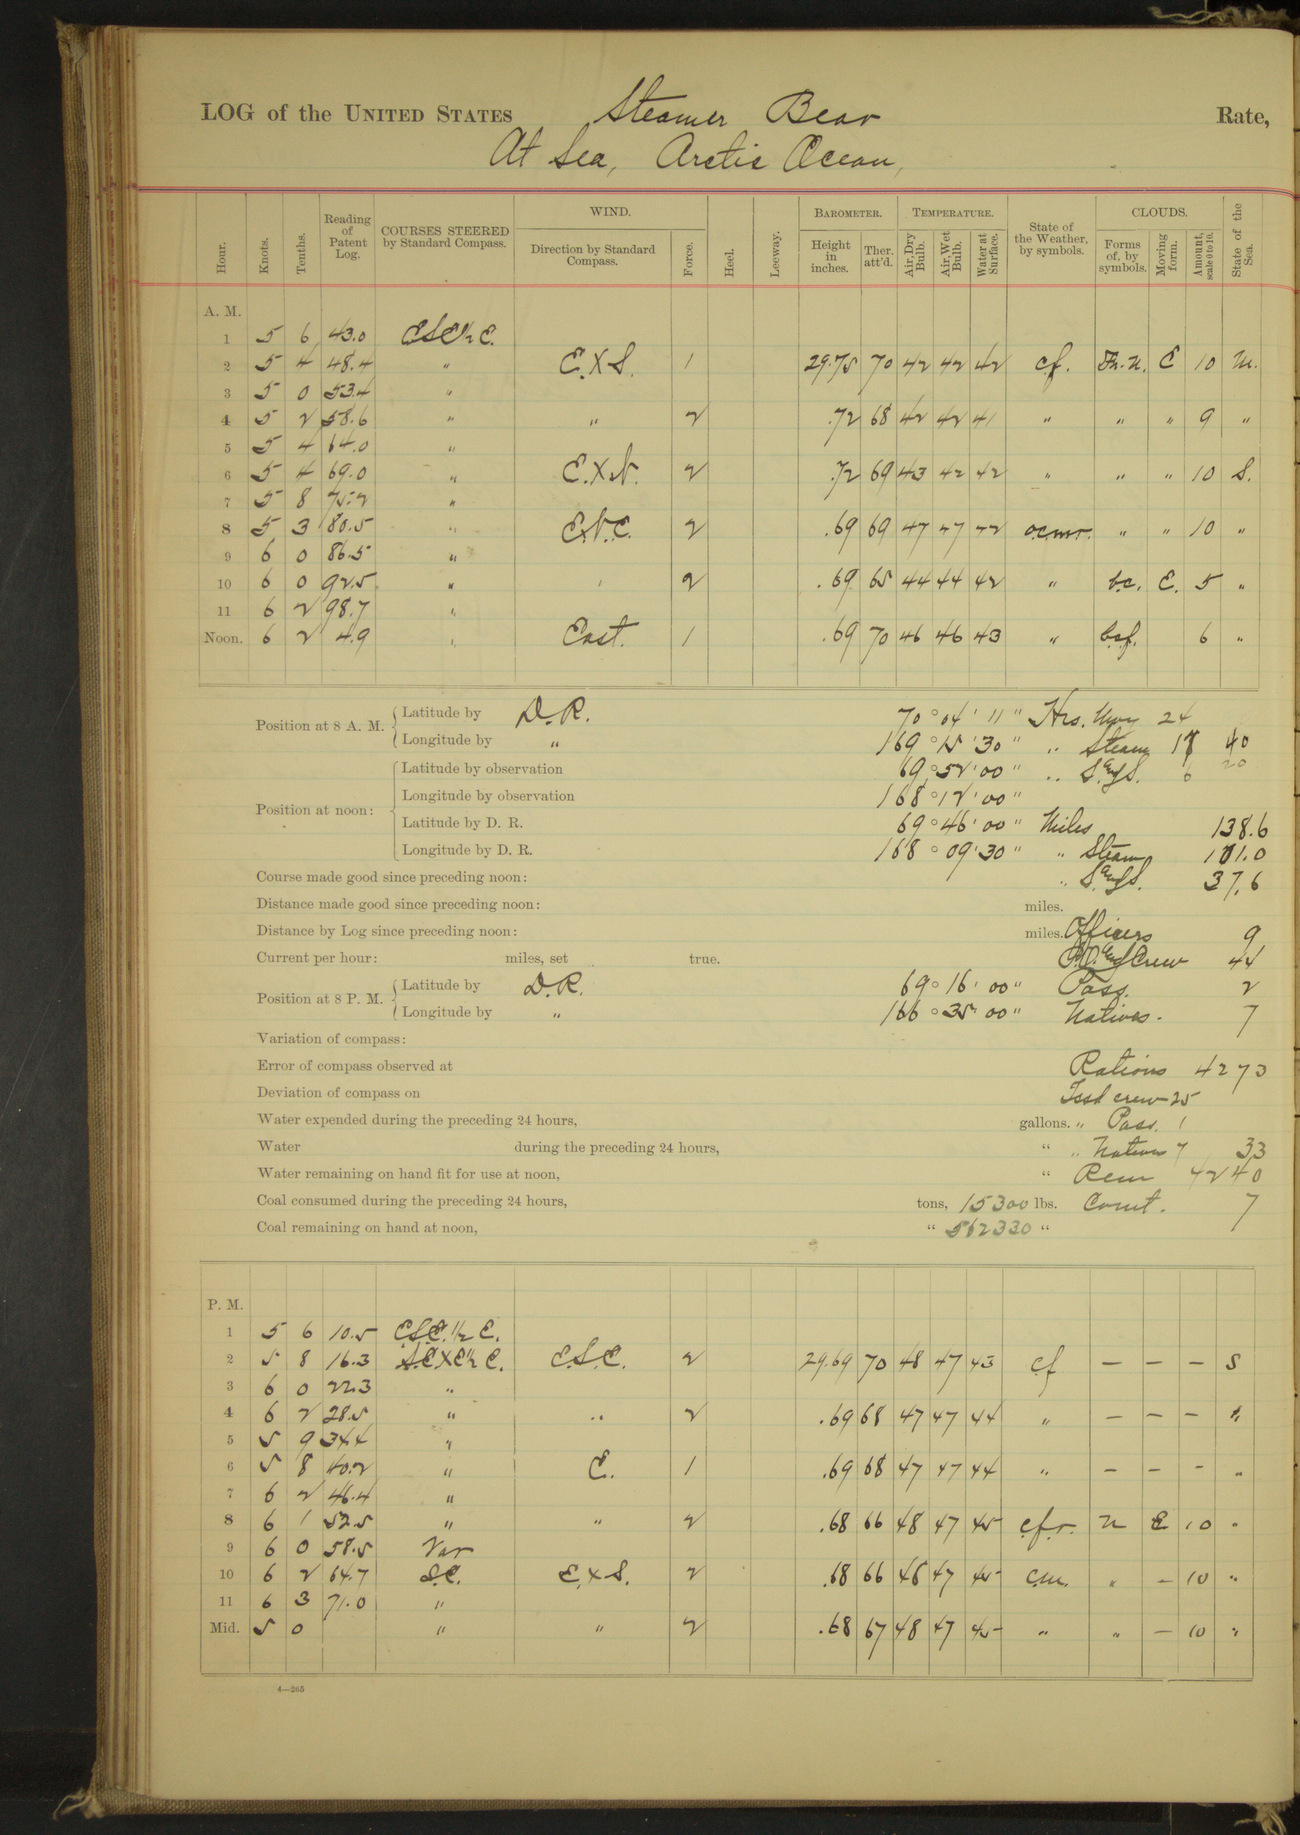 LOG of the UNITED STATES Steamer Bear Rate,
At Sea, Arctic Ocean,
Hour. Knots. Tenths. Reading of Patent Log. COURSES STEERED by Standard Compass. WIND. Direction by Standard Compass. Force. Heel. Leeway. BAROMETER. Height in inches. Ther. att'd. TEMPERATURE. Air, Dry Bulb. Air, Wet Bulb. Water at Surface. State of the Weather, by symbols. CLOUDS. Forms of, by symbols. Moving form. Amount, scale 0 to 10. State of the Sea.
A. M.
1 5 6 43.0 ESE½E.
2 5 4 48.4 " E.XS. 1 29.75 70 42 42 42 cf. E 10 M.
3 5 0 53.4 "
4 5 2 58.6 " " 2 .72 68 42 42 41 " " " 9 "
5 5 4 64.0 "
6 5 4 69.0 " E.XN. 2 .72 69 43 42 42 " " " 10 S.
7 5 8 75.2 "
8 5 3 80.5 " E.N.E. 2 .69 69 47 47 42 ocmr. " " 10 "
9 6 0 86.5 "
10 6 0 92.5 " ' 2 .69 65 44 44 42 " b.c. E. 5 "
11 6 2 98.7 "
Noon. 6 2 4.9 " East. 1 .69 70 46 46 43 " bcf. 6 "
Position at 8 A. M. Latitude by D.R. 70° 04' 11" Hrs. Unwy 24
Longitude by " 169° 15' 30" " Steam 17 40
Latitude by observation 69° 52' 00" " S. and S. 6 20
Position at noon: Longitude by observation 168° 12' 00"
Latitude by D. R. 69° 46' 00" Miles 138.6
Longitude by D. R. 168° 09' 30" " Steam 101.0
Course made good since preceding noon: " S. and S. 37.6
Distance made good since preceding noon: miles.
Distance by Log since preceding noon: miles. Officers 9
Current per hour: miles, set true. P.O. and Crew 44
Position at 8 P. M. Latitude by D.R. 69° 16' 00" Pass. 2
Longitude by " 166° 35' 00" Natives. 7
Variation of compass:
Error of compass observed at Rations 4273
Deviation of compass on Issd crew-25
Water expended during the preceding 24 hours, gallons. " Pass. 1
Water during the preceding 24 hours, " " Natives 7 33
Water remaining on hand fit for use at noon, " Rem 4240
Coal consumed during the preceding 24 hours, tons, 15300 lbs. Comt. 7
Coal remaining on hand at noon, " 562330 "
P. M.
1 5 6 10.5 ESE.½E.
2 5 8 16.3 SEXE½E. E.S.E. 2 29.69 70 48 47 43 cf — — — S
3 6 0 22.3 "
4 6 2 28.5 " " 2 .69 68 47 47 44 " — — — "
5 5 9 34.4 "
6 5 8 40.2 " E. 1 .69 68 47 47 44 " — — - "
7 6 2 46.4 "
8 6 1 52.5 " " 2 .68 66 48 47 45 cf.r. N E 10 "
9 6 0 58.5 Var
10 6 2 64.7 S.E. E.XS. 2 .68 66 48 47 45 c.m. " — 10 "
11 6 3 71.0 "
Mid. 5 0 " " 2 .68 67 48 47 45 " " — 10 "
4—265